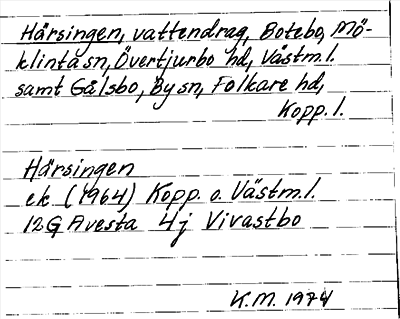 Hårsingen, vattendrag, Botebo, Mö-
klinta sn, Övertjurbo hd, Västm.l.
samt Gålsbo, By sn, Folkare hd,
Kopp. l.
Härsingen
ek. (1964) Kopp. o. Västm.l.
12G Avesta 4j Vivastbo
K.M. 1974